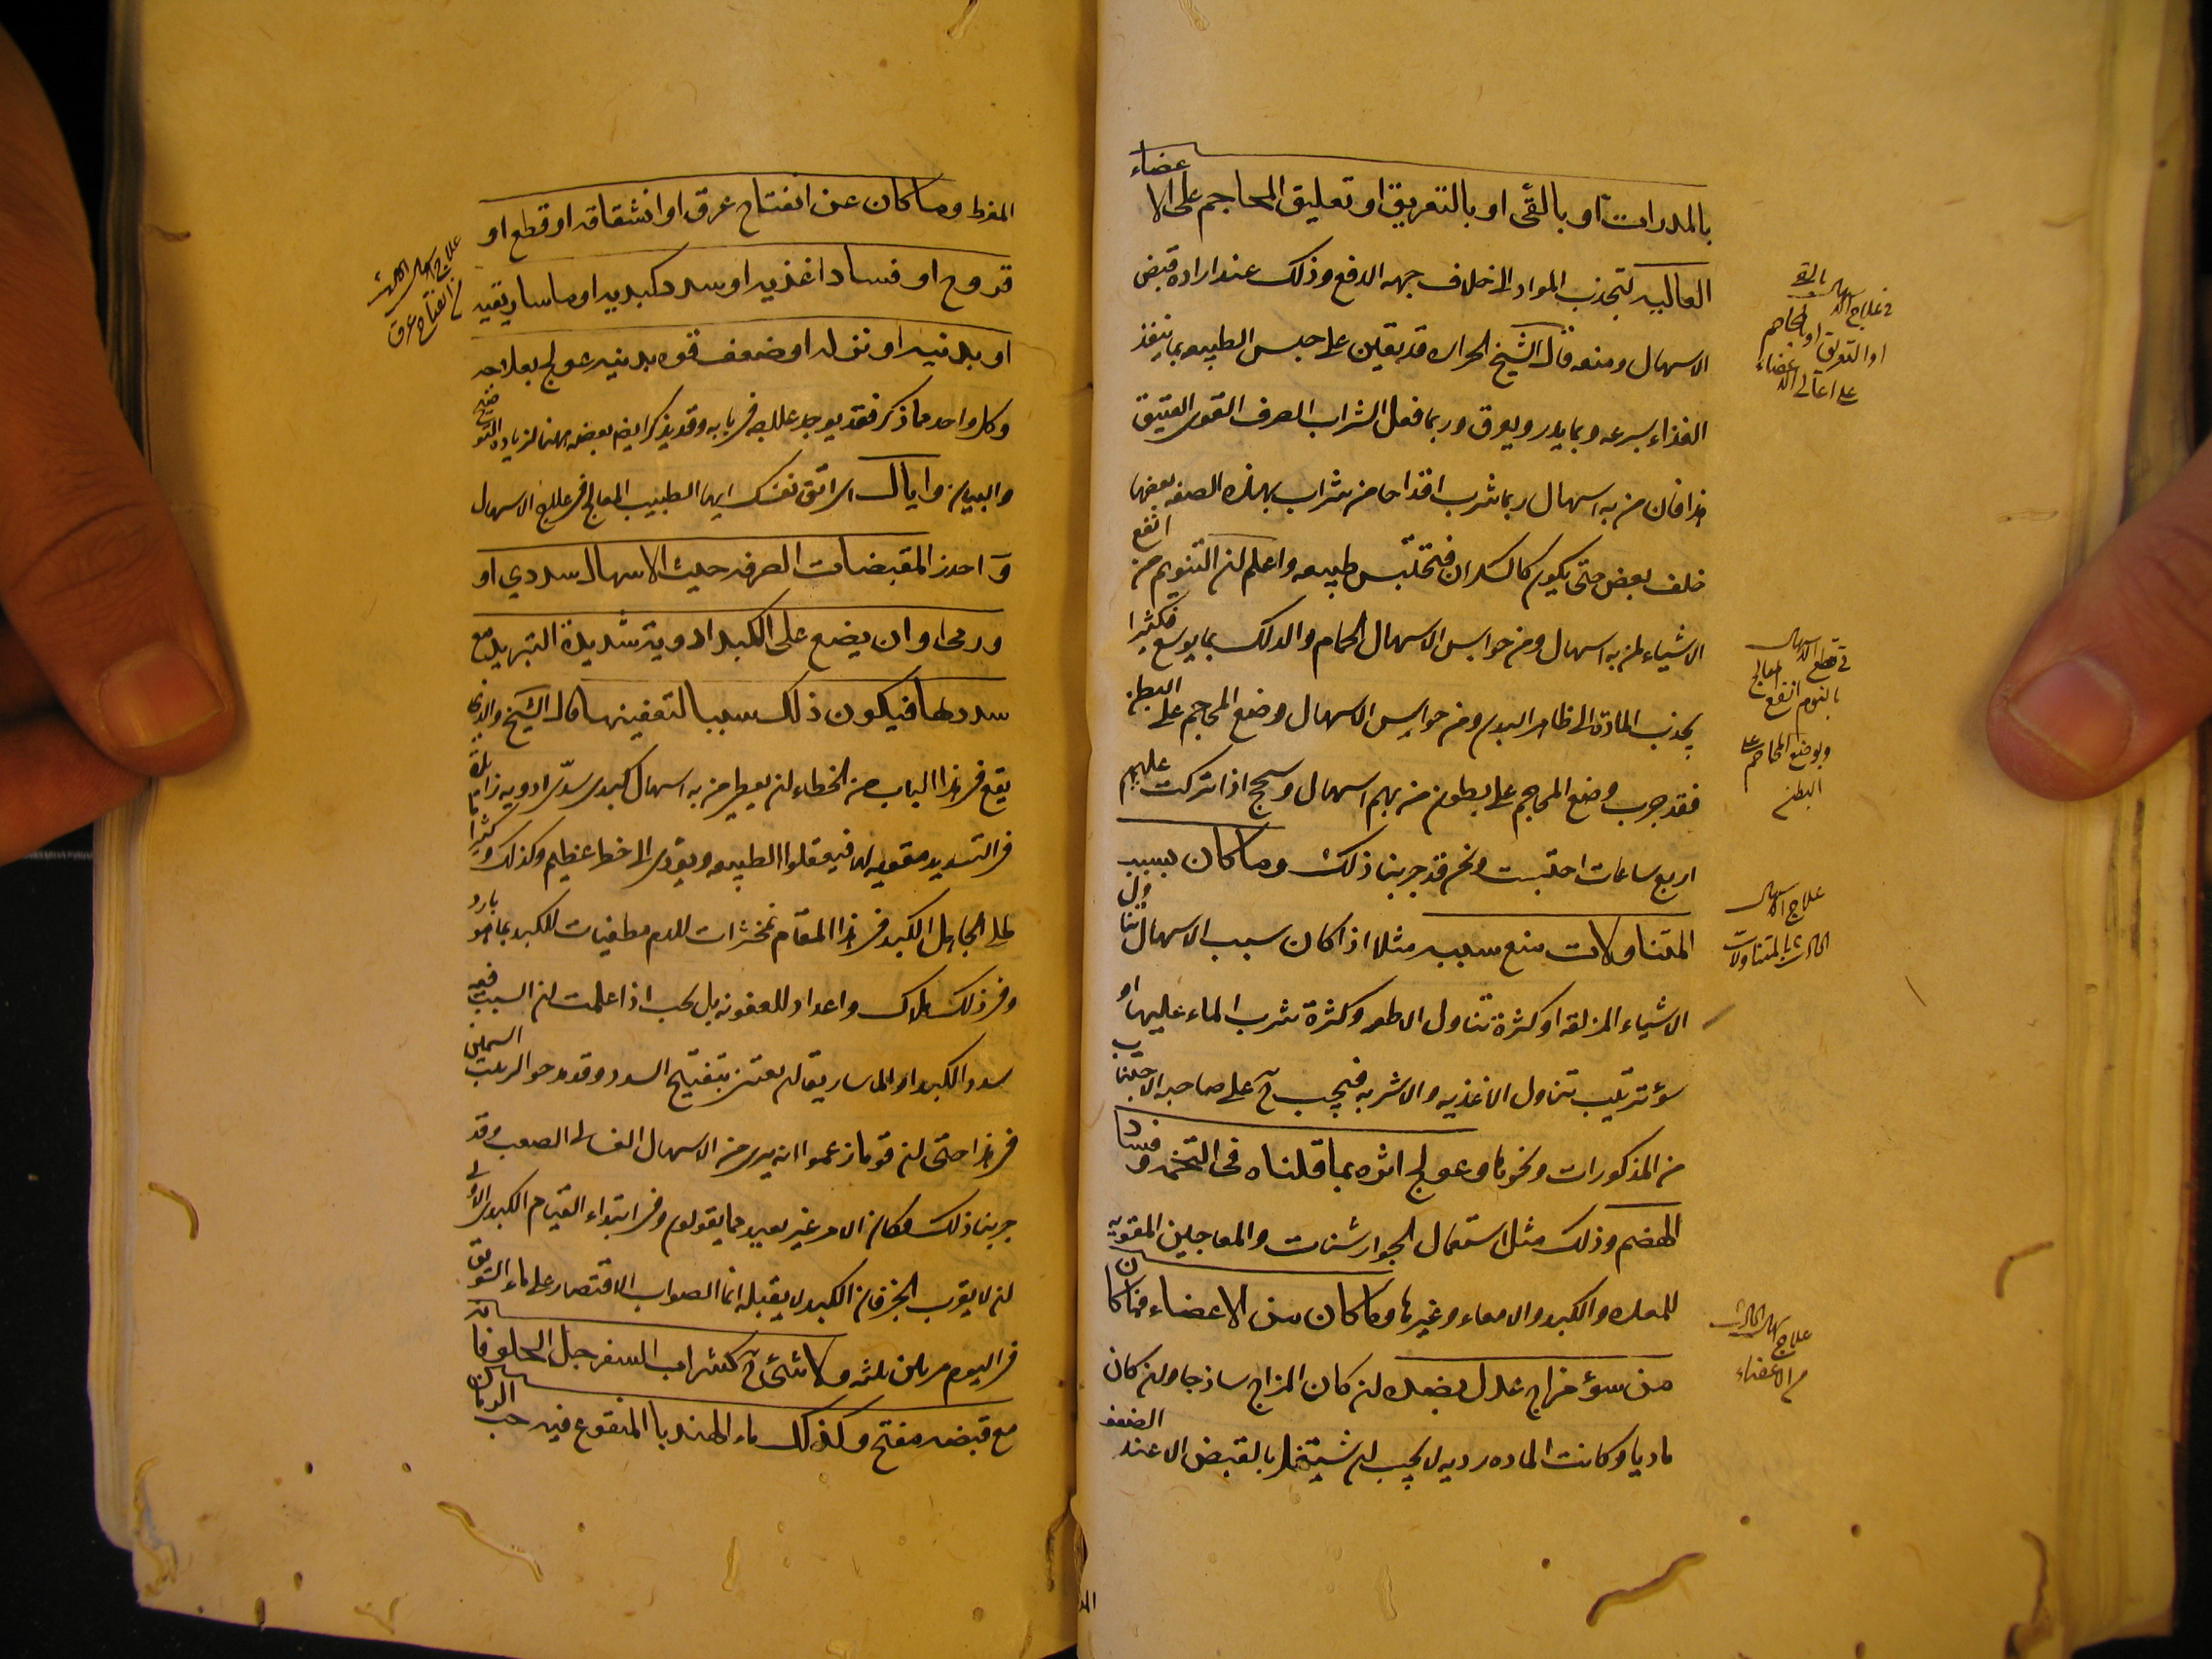 بالمدرات او بالقئ او بالتعريق او تعليق المحاجم على الاعضاء
العاليه لتجذب المواد الى خلاف جهه الدفع وذلك عند اراده قبض
الاسهال ومنه قال الشيخ الحراره قد يعين على حبس الطبيعه بما ينفذ
الغذاء بسرعه وبما يدر ويعرق وربما فعل الشراب الصرف القوى العتيق
هذا فان من به اسهال ربما شرب اقداحا من شراب بهذه الصفه بعضها
خلف بعض حتى يكون كالسكران فتحتبس طبيعه واعلم ان التنويم من انفع
الاشياء لمن به اسهال ومن حوابس الاسهال الحمام والدلك بما يوسع فكثيرا
يجذب المادة الى ظاهر البدن ومن حوابس الاسهال وضع المحاجم على البطن
فقد جرب وضع المحاجم على بطون من بهم اسهال وسحج اذا تركت عليهم
اربع ساعات احتبست ونحن قد جربنا ذلك وما كان بسبب
المتناولات منع سببه مثلا اذا كان سبب الاسهال تناول
الاشياء المزلقه او كثرة تناول الاطعمه وكثرة شرب الماء عليها او
سوء ترتيب تناول الاغذيه والاشربه فيجب ح على صاحبه الاجتناب
من المذكورات ونحوها وعولج اثره بما قلناه فى التخمه وفساد
الهضم وذلك مثل استعمال الجوارشنات والمعاجين المقويه
للمعده والكبد والامعاء وغيرها وما كان من الاعضاء فما كان
من سوء مزاج عدل بضده ان كان المزاج ساذجا وان كان
ماديا وكانت الماده رديه لا يجب ان يشتغل بالقبض الا عند الضعف
فى علاج الاسهال بالقئ
او التعريق او المحاجم
على اعالى الاعضاء
فى قطع الاسهال
بالنوم انفع
وبوضع المحاجم على
البطن
علاج الاسهال
الحادث بالمتناولات
علاج اسهال الحادث
من الاعضاء
المفرط وما كان عن انفتاح عرق او انشقاقه او قطع او
قروح او فساد اغذيه او سدد كبديه او ماساريقيه
او بدنيه او نزله او ضعف قوه بدنيه عولج بعلاجه
وكل واحد مما ذكر فقد يوجد علاجه فى بابه وقد يذكر ايضا بعضه ههنا لزياده التوضيح
والبيان واياك اتق نفسك ايها الطبيب المعالج فى علاج الاسهال
واحذر المقبضات الصرفه حيث الاسهال سددي او
ورمى او ان يضع على الكبد ادوية شديدة التبريد مع
سددها فيكون ذلك سببا لتعفينها قال الشيخ والذى
يقع فى هذا الباب من الخطاء ان يعطى من به اسهال كبدى سدّى ادويه زائدة
فى التسديد مقويه لها فيعقلوا الطبيعه ويؤدى الى خطر عظيم وكذلك كثيرا ما
طلى الجاهل الكبد فى هذا المقام بمخثرات للدم مطفيات للكبد بما هو بارد
وفى ذلك هلاك واعداد للعفونه بل يجب اذا علمت ان السبب فيه
سدد الكبد او الماساريقا ان يعتنى بتفتيح السدد وقد مدحوا الزبيب السمين
فى هذا حتى ان قوما زعموا انه يبرى من الاسهال الغسالى الصعب وقد
جربنا ذلك فكان الامر غير بعيد مما يقولون وفى ابتداء القيام الكبدى الاولى
ان لا يقرب الخبز فان الكبد لا يقبله انما الصواب الاقتصار على ماء السويق
فى اليوم مرتين ثلثه ولا شئ ح كشراب السفرجل الحلو فانه
مع قبضه مفتح وكذلك ماء الهندبا المنقوع فيه حب الرمان
علاج اسهال الحادث
من انفتاح عرق